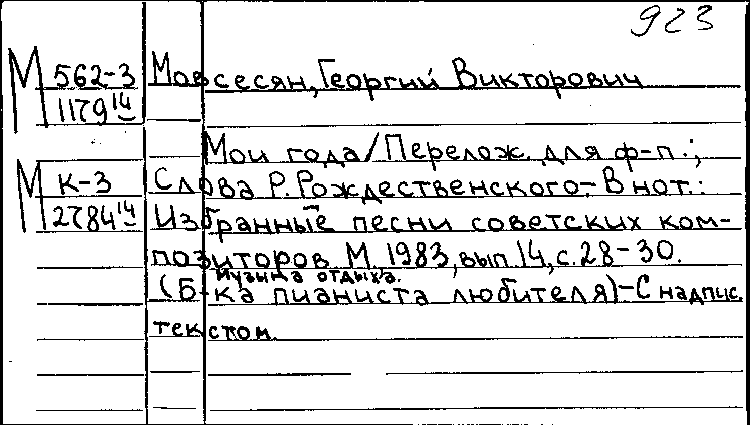 923
М 562-3 Мовсесян, Георгий Викторович
1179 14
Мои года/Перелож. для ф-п.;
М К-3 Слова Р. Рождественского.- В нот.:
2784 14 Избранные песни советских ком-
позиторов М. 1983, вып. 14, с. 28-30.
Музыка отдыха.
(Б-ка пианиста любителя)-С надпис.
текстом.